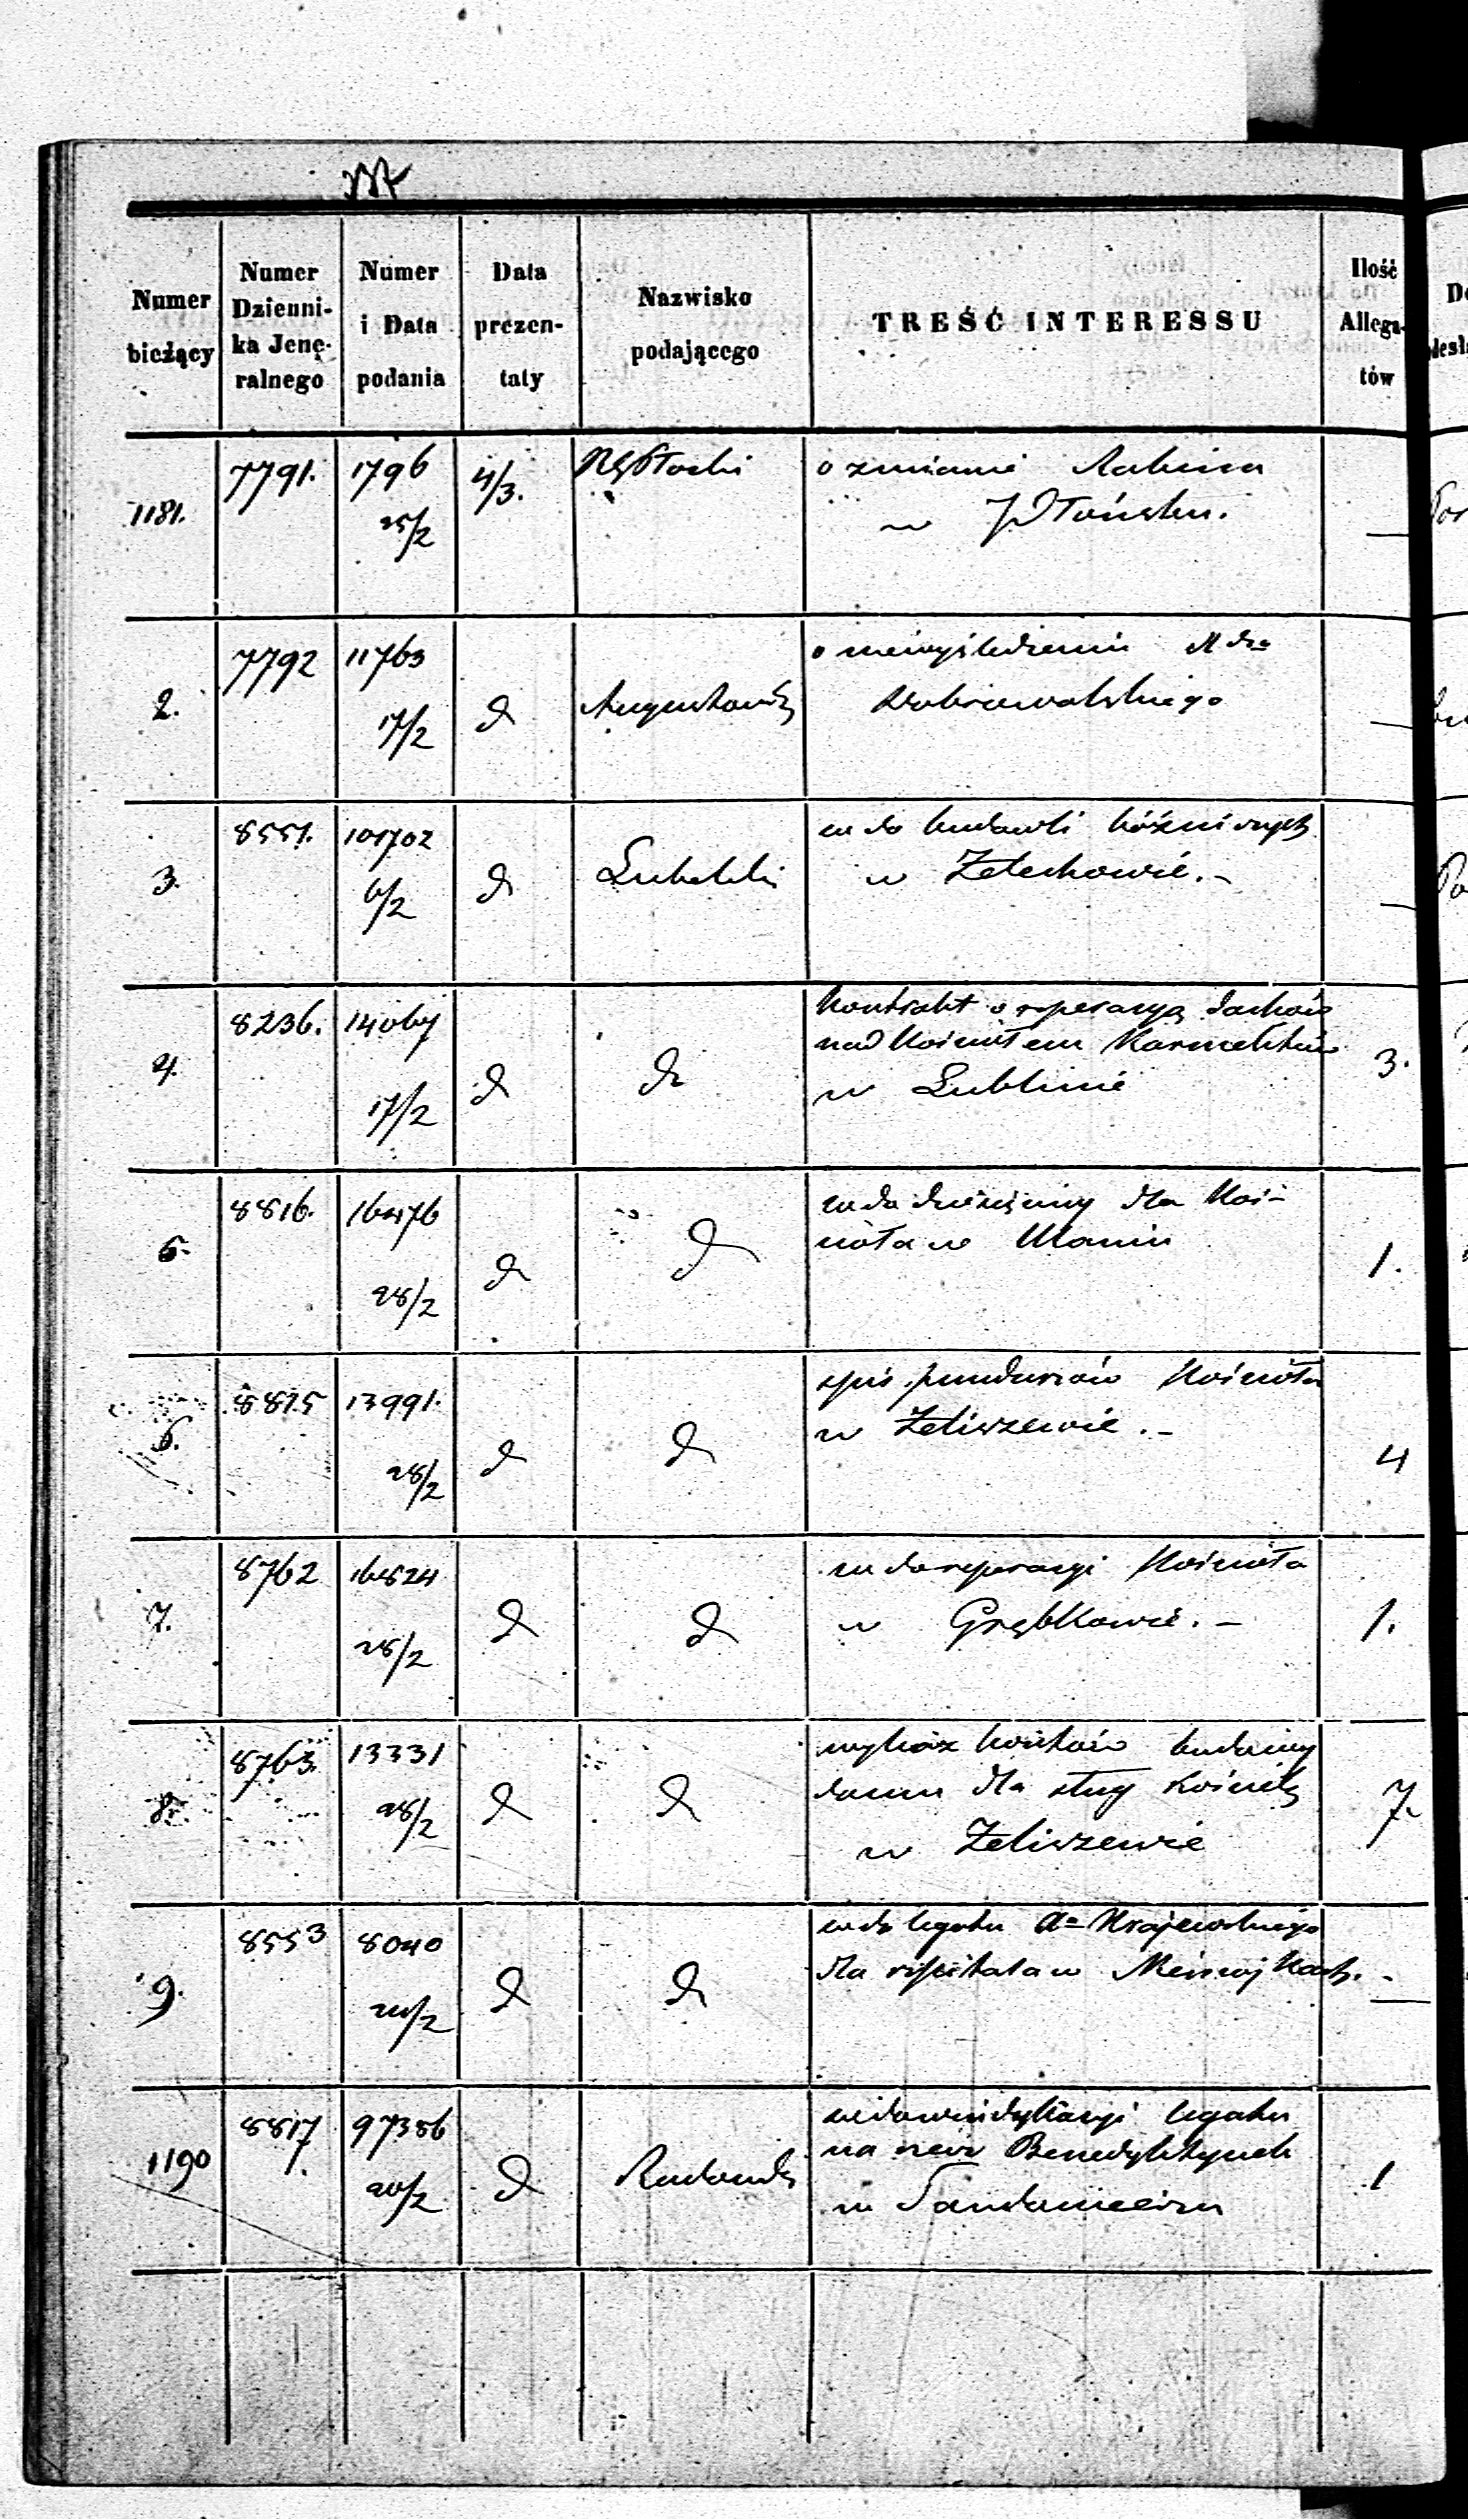 Numer bieżący
Numer Dzienni- ka Jene- ralnego
Numer i Data podania
Data prezen- taty
Nazwisko podającego
TREŚĆ INTERESSU
Ilość Allega- tów
1181. 7791. 1796 25/2 4/3. RG Płocki o zmianie Rabina
w Płońsku. —
2. 7792 11763 17/2 d Augustowski o niewyśledzeniu
Dobrowolskiego —
3. 8551. 101702 6/2 d Lubelski w do budowli bóżniczych
w Żelechowie. - —
4. 8236. 14067 17/2 d d Kontrakt o reperacyą dachów
nad Kościołem Karmelitów 3.
w Lublinie
5. 8816. 16476 28/2 d d w do dziesięciny dla Koś-
cioła w Ulaniu 1.
6. 8815 13991. 28/2 d d spis funduszów Kościoła
w Żeliszewie. - 4
7. 8762 16824 28/2 d d w do reperacyi Kościoła
w Grębkowie. - 1.
8. 8763. 13331 28/2 d d wykaz kosztów budowy
domu dla sług kościel
w Żeliszewie 7.
9. 8553 8040 20/2 d d w do legatu Xa Krajewskiego
dla szpitala w - —
1190 8817. 97386 20/2 d Radomski w do windykacyi legatu
na rzecz Benedyktynek
w Sandomierzu 1